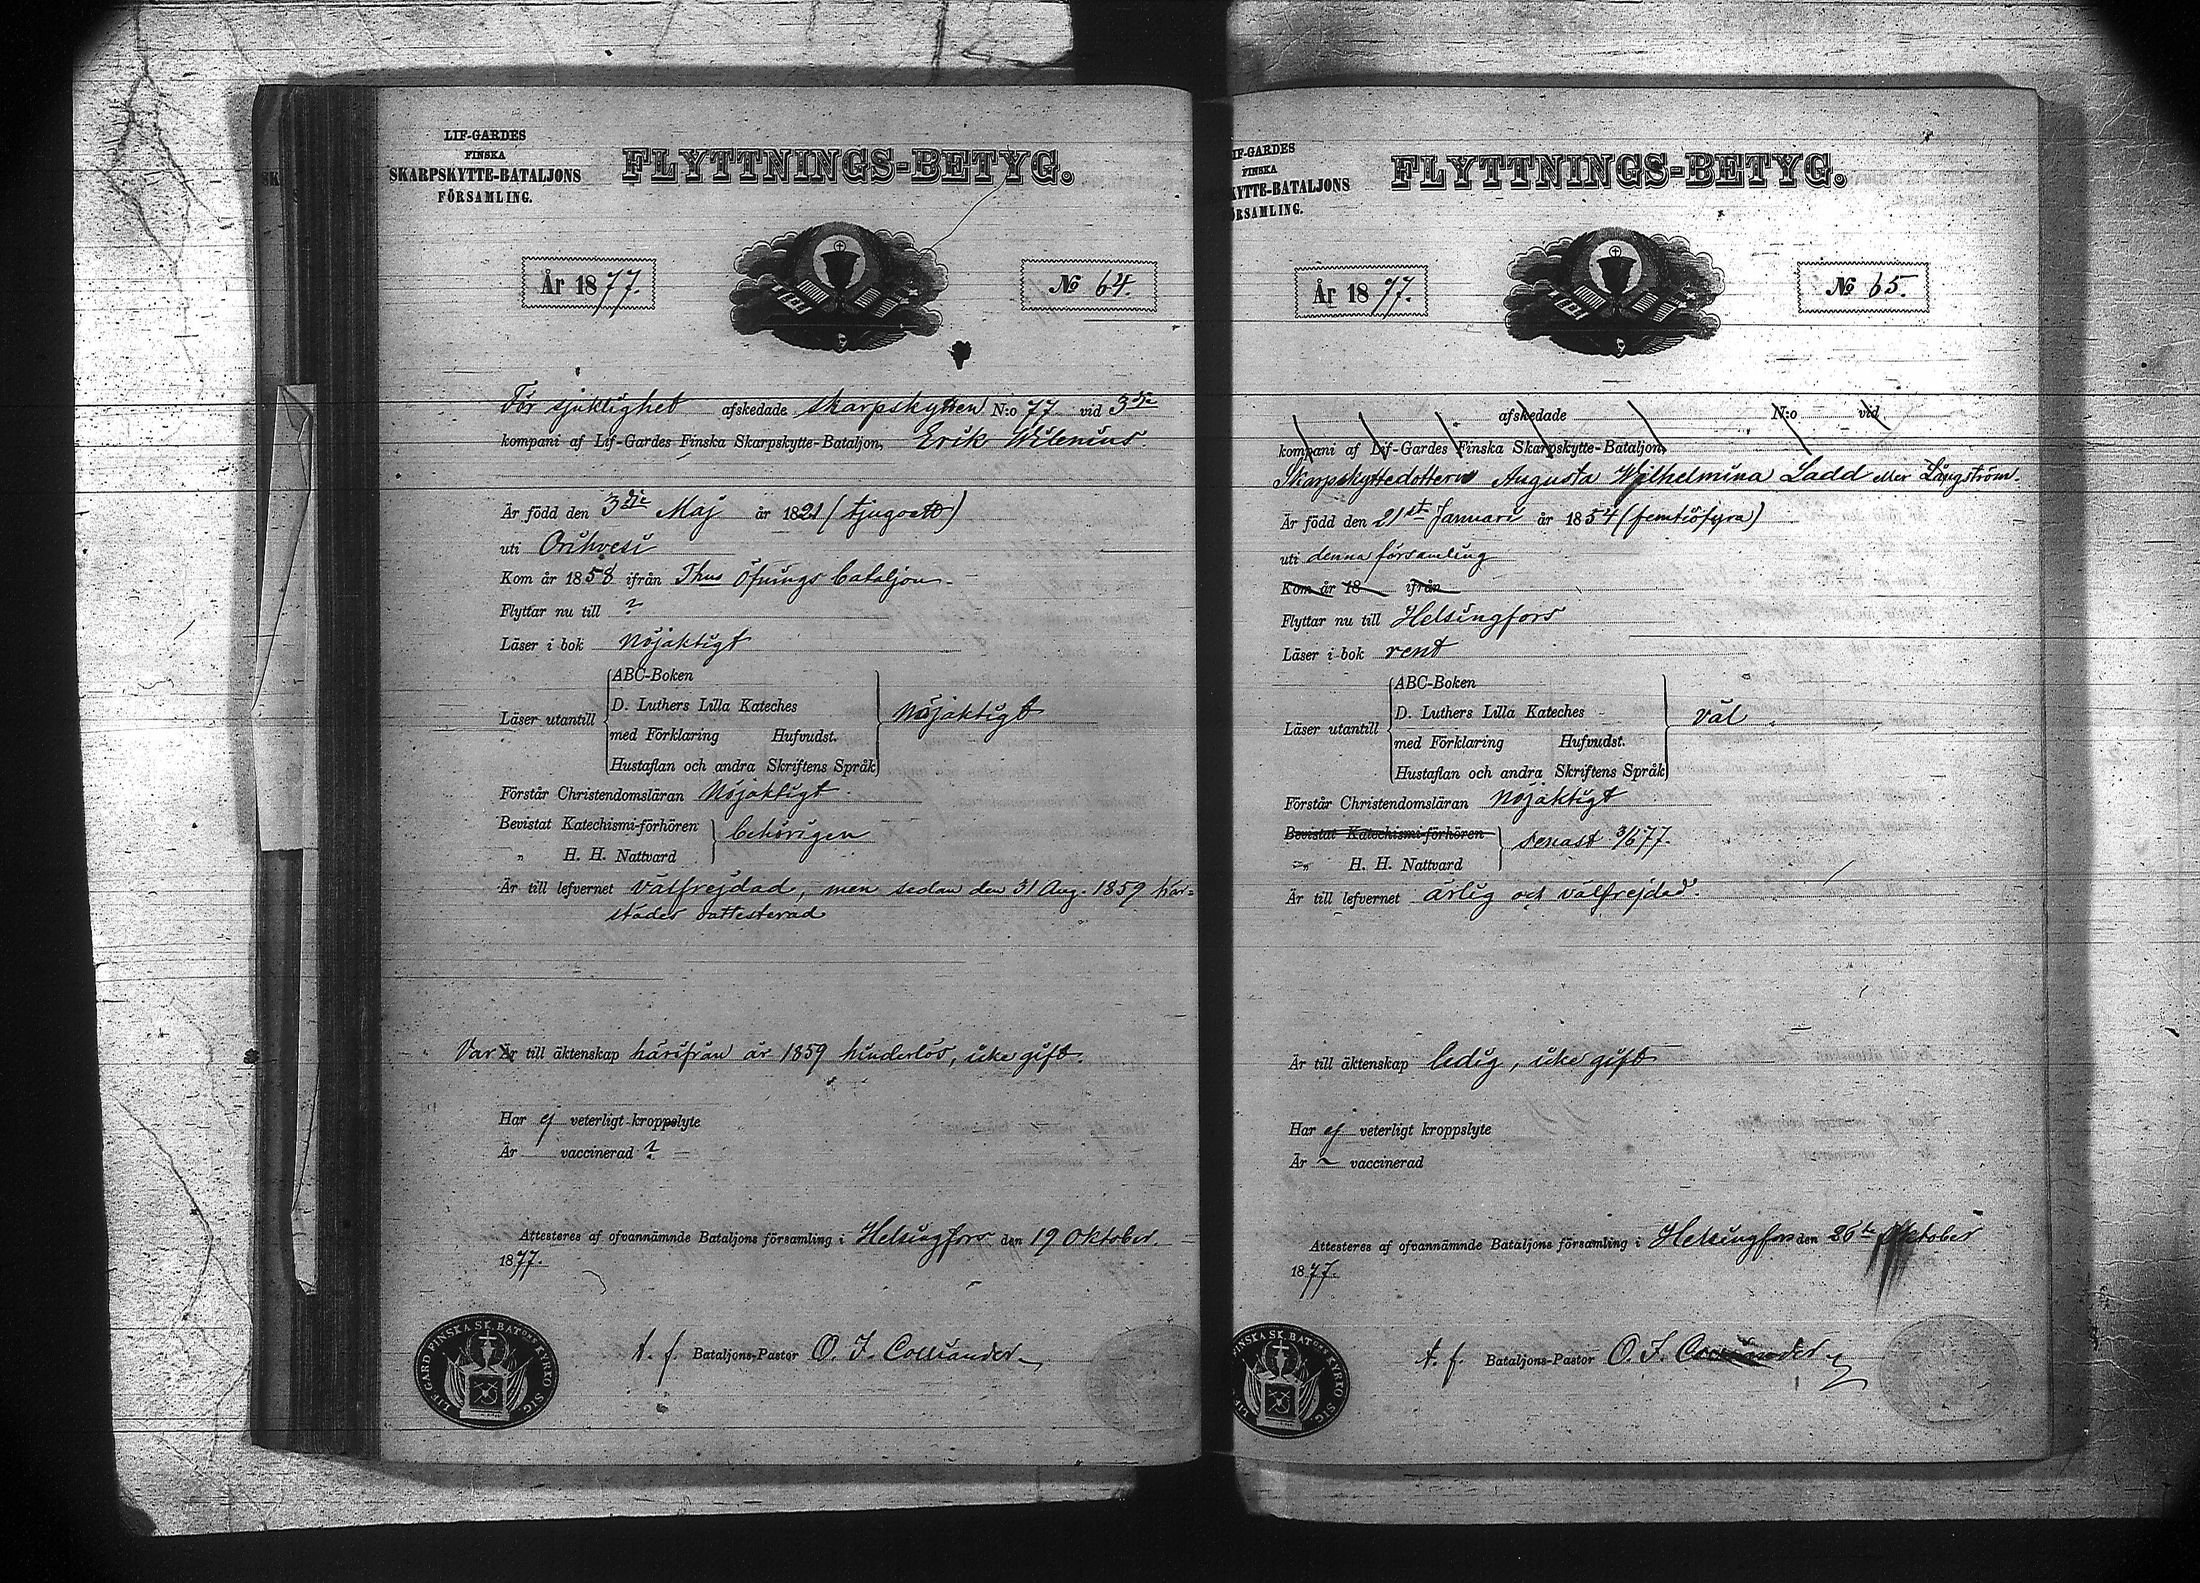 LIF-GARDES
FINSKA
SKARPSKYTTE-BATALJONS
FÖRSAMLING.
FLYTTNINGS-BETYG.
År 1877.
No 64.
För sjuklighet afskedade skarpskytten N:o 77 vid 3dje
kompani af Lif-Gardes Finska Skarpskytte-Bataljon, Erik Wilenius.
Är född den 3dje Maj år 1821 (tjugoett)
uti Orihvesi
Kom år 1858 ifrån Thus Öfnings bataljon.
Flyttar nu till ?
Läser i bok nöjaktigt
ABC-Boken
D. Luthers Lilla Kateches
Läser utantill
nöjaktigt
med Förklaring Hufvudst.
Hustaflan och andra Skriftens Språk
Förstår Christendomsläran nöjaktigt.
Bevistat Katechismi-förhören
behörigen
„ H. H. Nattvard
Är till lefvernet välfrejdad, men sedan den 31 Aug. 1859 här-
städes oattesterad
Var Är till äktenskap härifrån år 1859 hinderlös, icke gift.
Har ej veterligt kroppslyte
Är vaccinerad ?
Attesteres af ofvannämnde Bataljons församling i Helsingfors den 19 Oktober.
1877.
t. f. Bataljons-Pastor O. I. Colliander
LIF-GARD FINSKA SK. BATONS KYRKO SIG.
IF-GARDES
FINSKA
KYTTE-BATALJONS
ÖRSAMLING.
FLYTTNINGS-BETYG.
År 1877.
No 65.
afskedade N:o vid
kompani af Lif-Gardes Finska Skarpskytte-Bataljon,
Skarpskyttedottern Augusta Wilhelmina Ladd eller Långström.
Är född den 21st Januari år 1854 (femtiofyra)
uti denna församling
Kom år 18 ifrån
Flyttar nu till Helsingfors
Läser i bok rent
ABC-Boken
D. Luthers Lilla Kateches
Läser utantill
väl
med Förklaring Hufvudst.
Hustaflan och andra Skriftens Språk
Förstår Christendomsläran nöjaktigt
Bevistat Katechismi-förhören
senast 3/6 77.
„ H. H. Nattvard
Är till lefvernet ärlig och välfrejdad.
Är till äktenskap ledig, icke gift
Har ej veterligt kroppslyte
Är ~ vaccinerad
Attesteres af ofvannämnde Bataljons församling i Helsingfors den 26te Oktober
1877.
t. f. Bataljons-Pastor O. I. Colliander
FINSKA SK. BATONS KYRKO SIG.